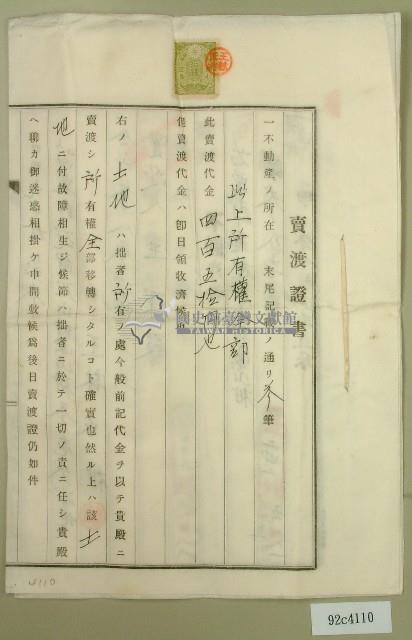 賣渡證書
一不動產ノ所在 末尾記載ノ通リ 筆
以上所有權全部
此賣渡代金 四百五拾 也
但賣渡代金ハ即日領收濟候也
右ノ 土地 ハ拙者所有ノ處今般前記代金ヲ以テ貴殿ニ
賣渡シ所有權全部移轉シタルコト確實也然ル上ハ該土
地ニ付故障相生シ候節ハ拙者ニ於テ一切ノ責ニ任シ貴殿
ヘ聊カ御迷惑相掛ケ申間敷候爲後日賣渡證仍如件
國史館臺灣文獻館
TAIWAN HISTORICA
4110
92c4110